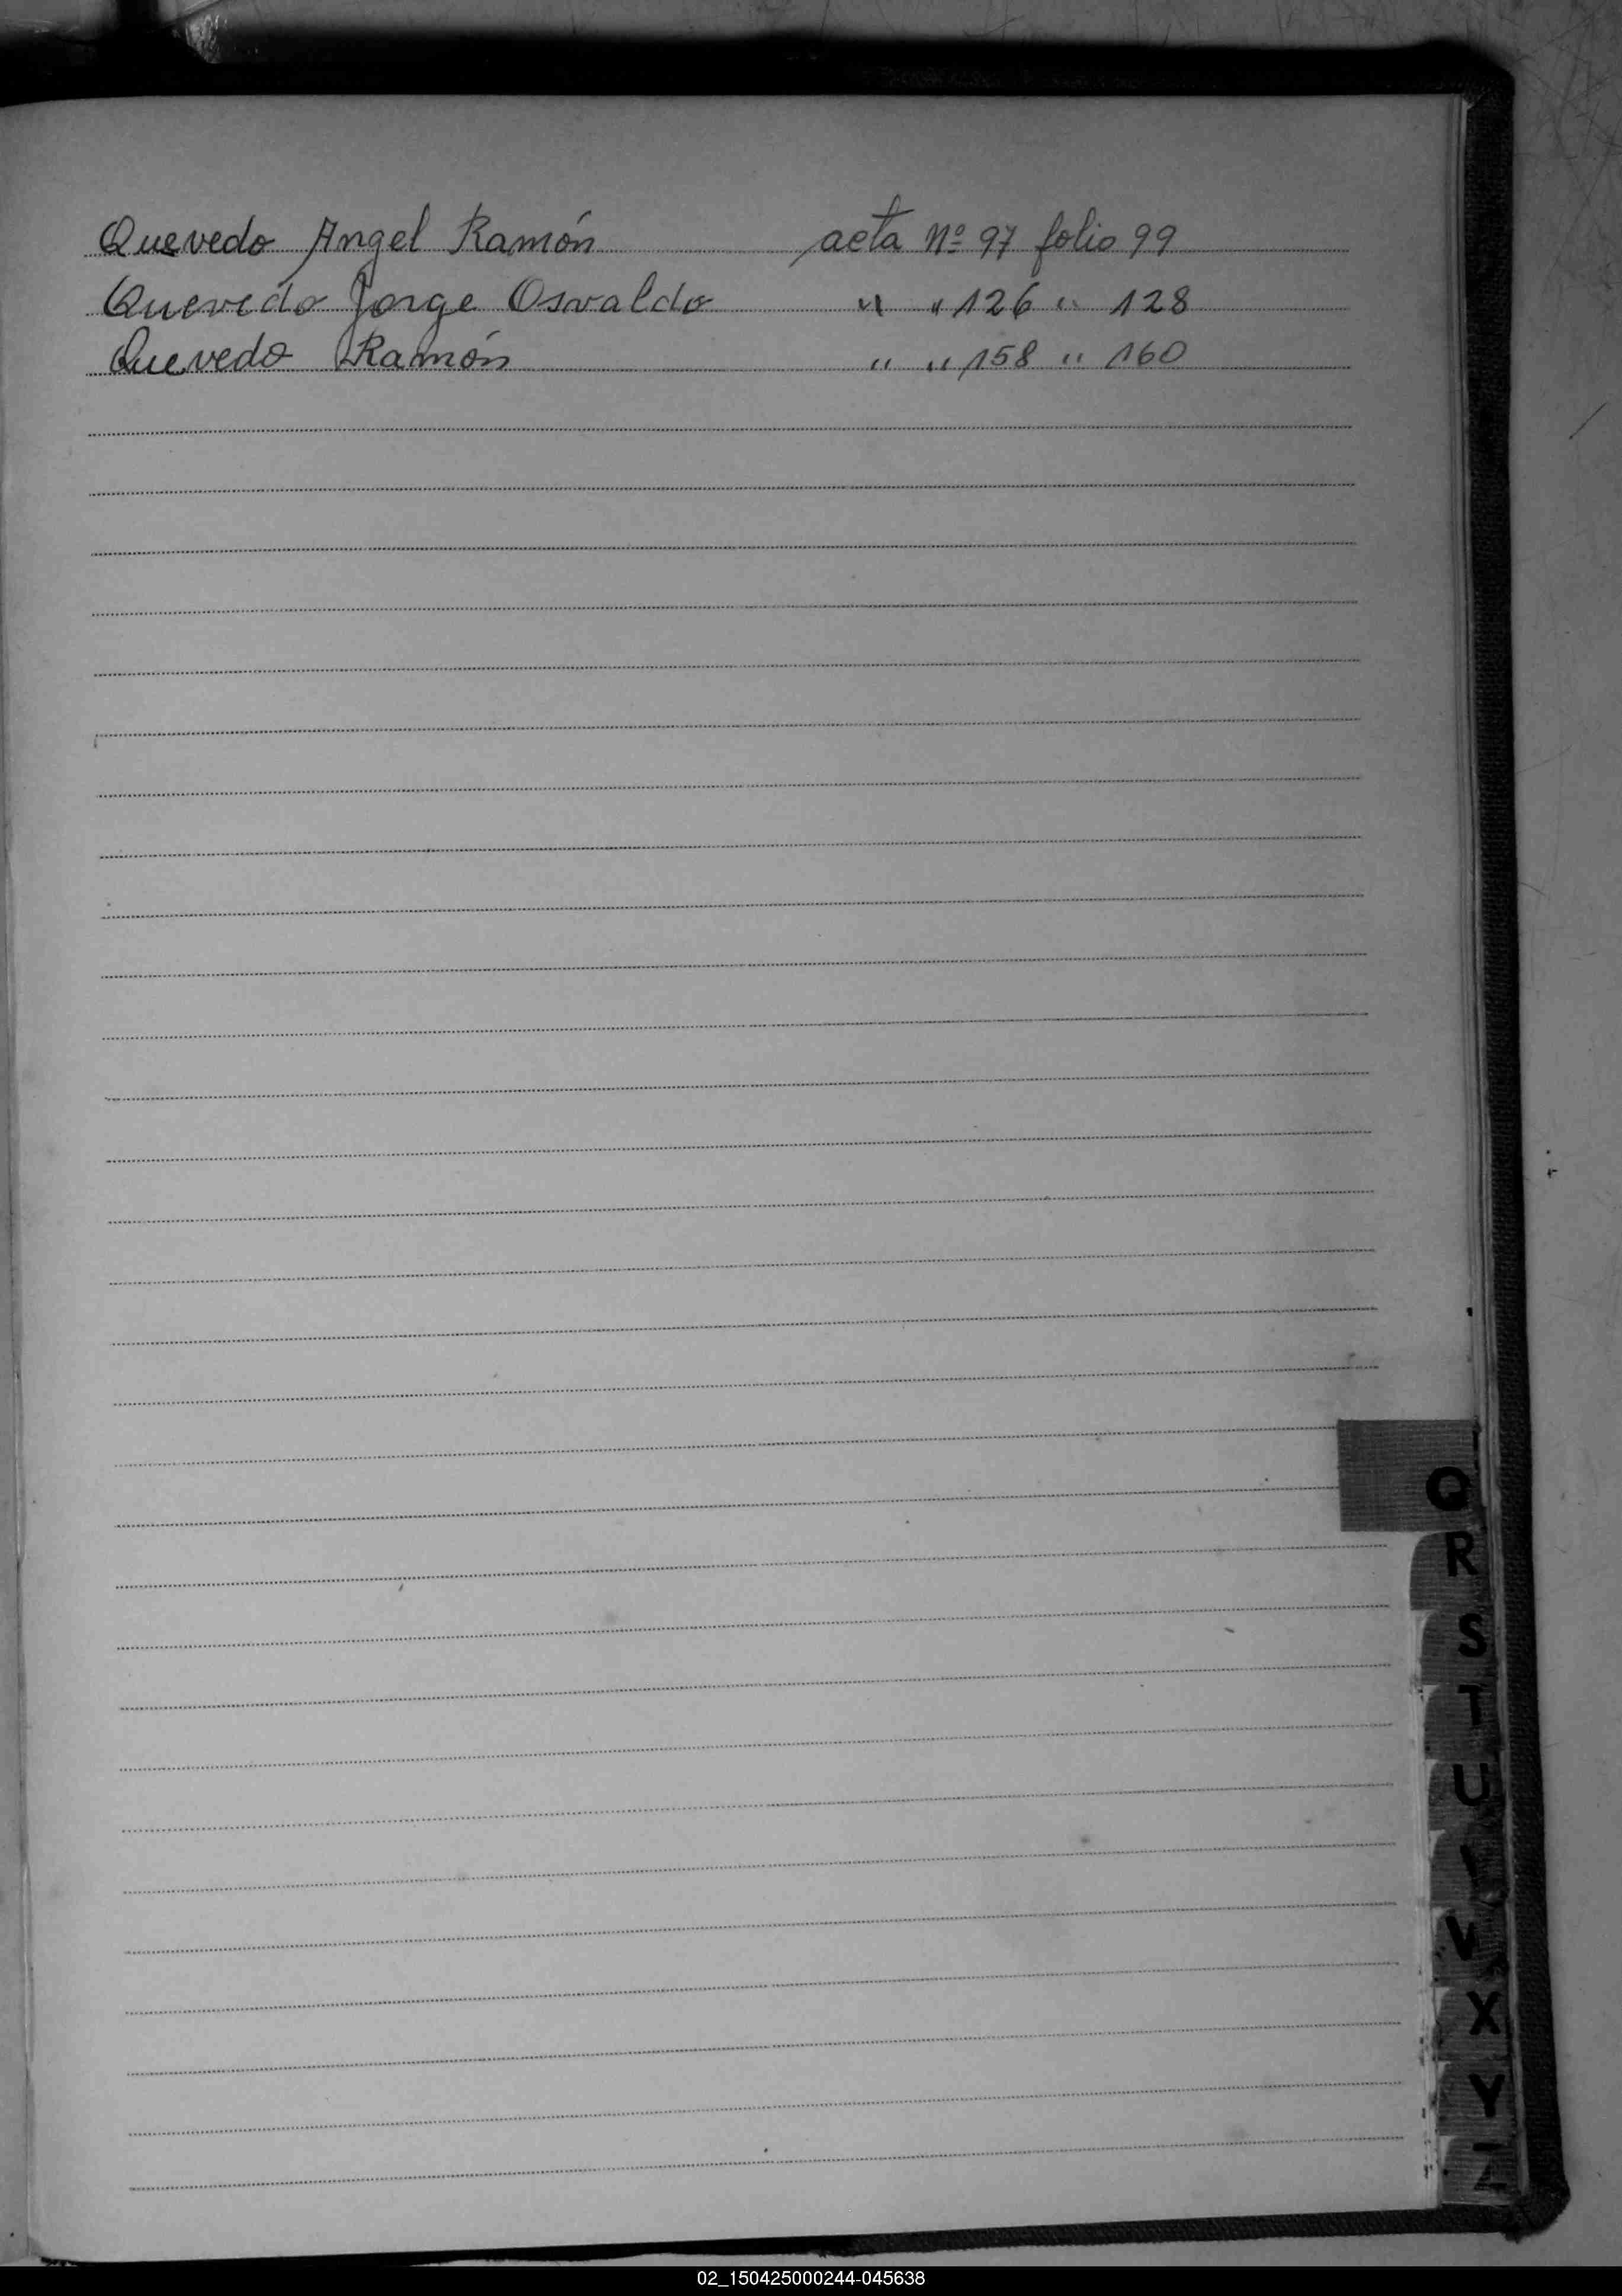 Quevedo Angel Ramón acta Nº 97 folio 99
Quevedo Jorge Osvaldo " " 126 " 128
Quevedo Ramón " " 158 " 160
Q
R
S
T
U
V
X
Y
Z
02_150425000244-045638